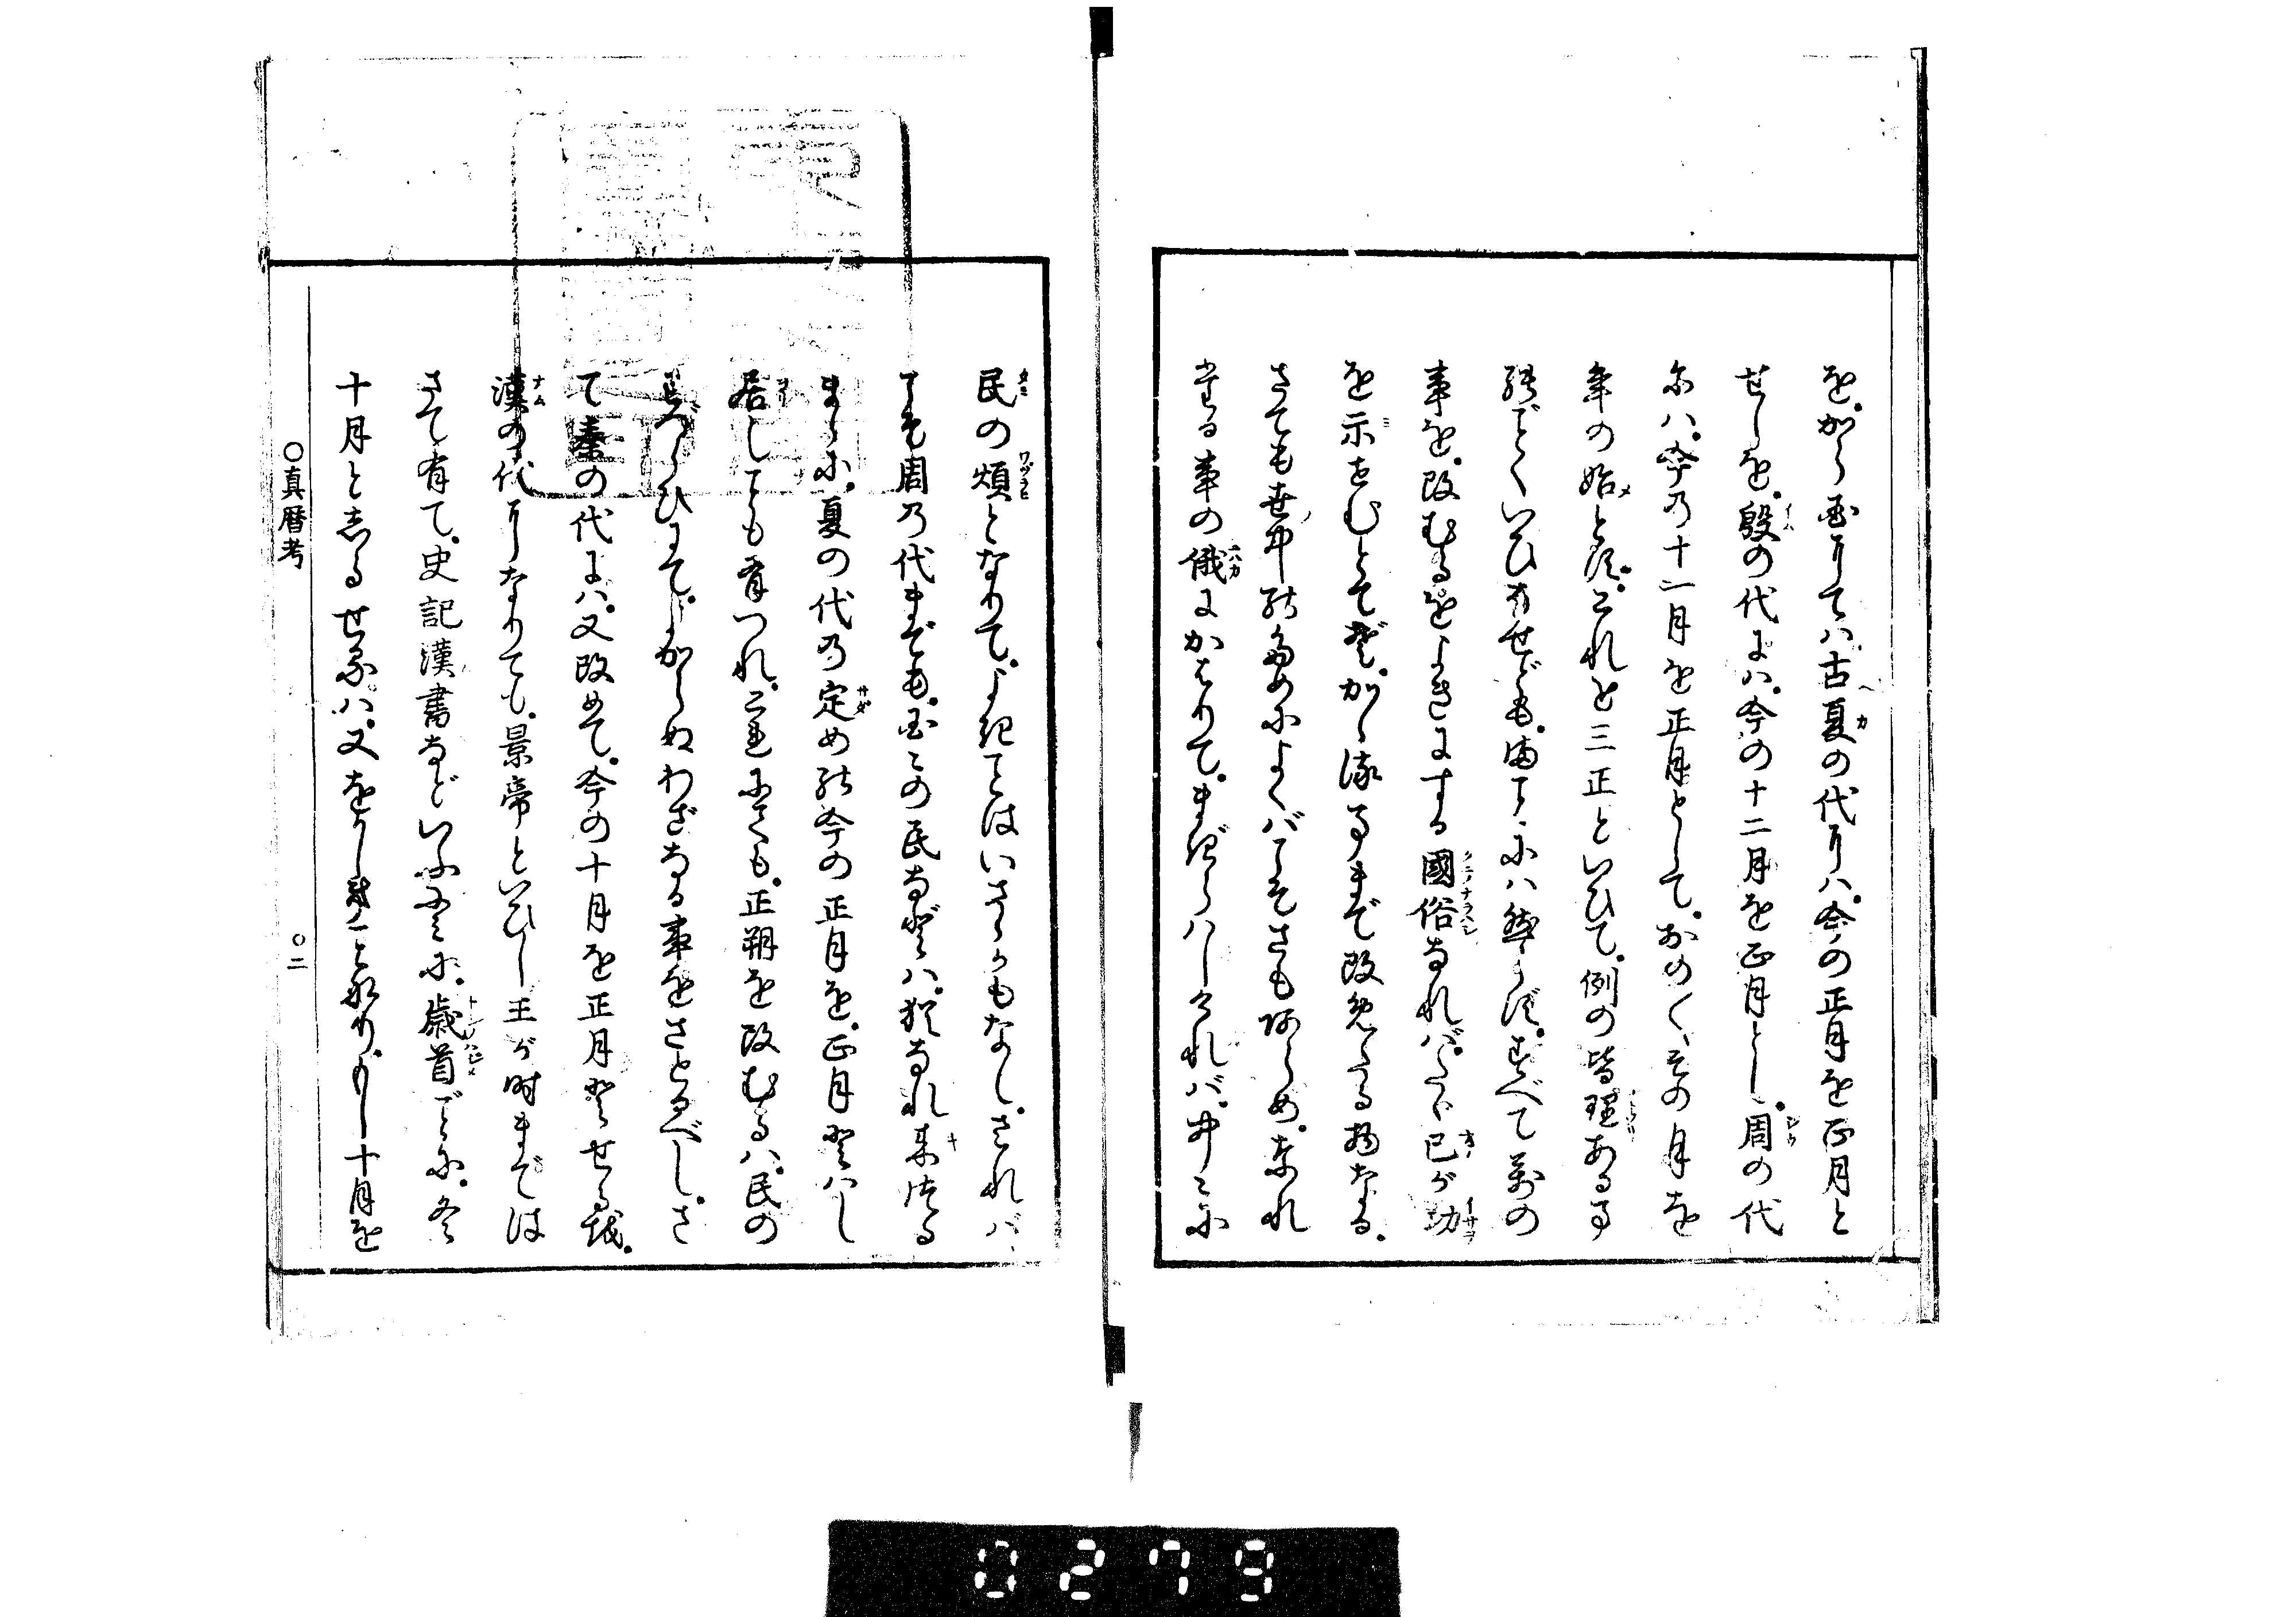 を。から国にては。古夏の代には。今の正月を正月と
せしを。殷の代には。今の十二月を正月とし。周の代
には。今の十一月を正月として。おの〱その月を
年の始とす。これを三正といひて。例の皆理ある事
のごとくいひなせども。まことには然らず。すべて万の
事を。改むるをよきにする國俗なれば。たゞ己が功
を示さむとてぞ。かゝる事まで改めたる物なる。
さても世中のためによくばこそさもあらめ。これ
は事の儀にかはりて。まぎらはしければ。中々に
民の煩となりて。よきことはいさゝかもなし。されば
こそ周の代までも。国々の民などは。猶なれ来ぬる
まゝに。夏の代の定めの今の正月を。正月とはし
居しことも有つれ。これにても。正朔を改むるは。民の
ねがひにて。しからぬわざなる事をさとるべし。さ
て秦の代には。又改めて。今の十月を正月とせるを。
漢の代になりても。景帝といひし王が時までは
さて有て。史記漢書などいふふみに。歳首ごとに。冬
十月としるせるは。又をかしきことなり。もし十月を
〇真暦考
〇二
0279